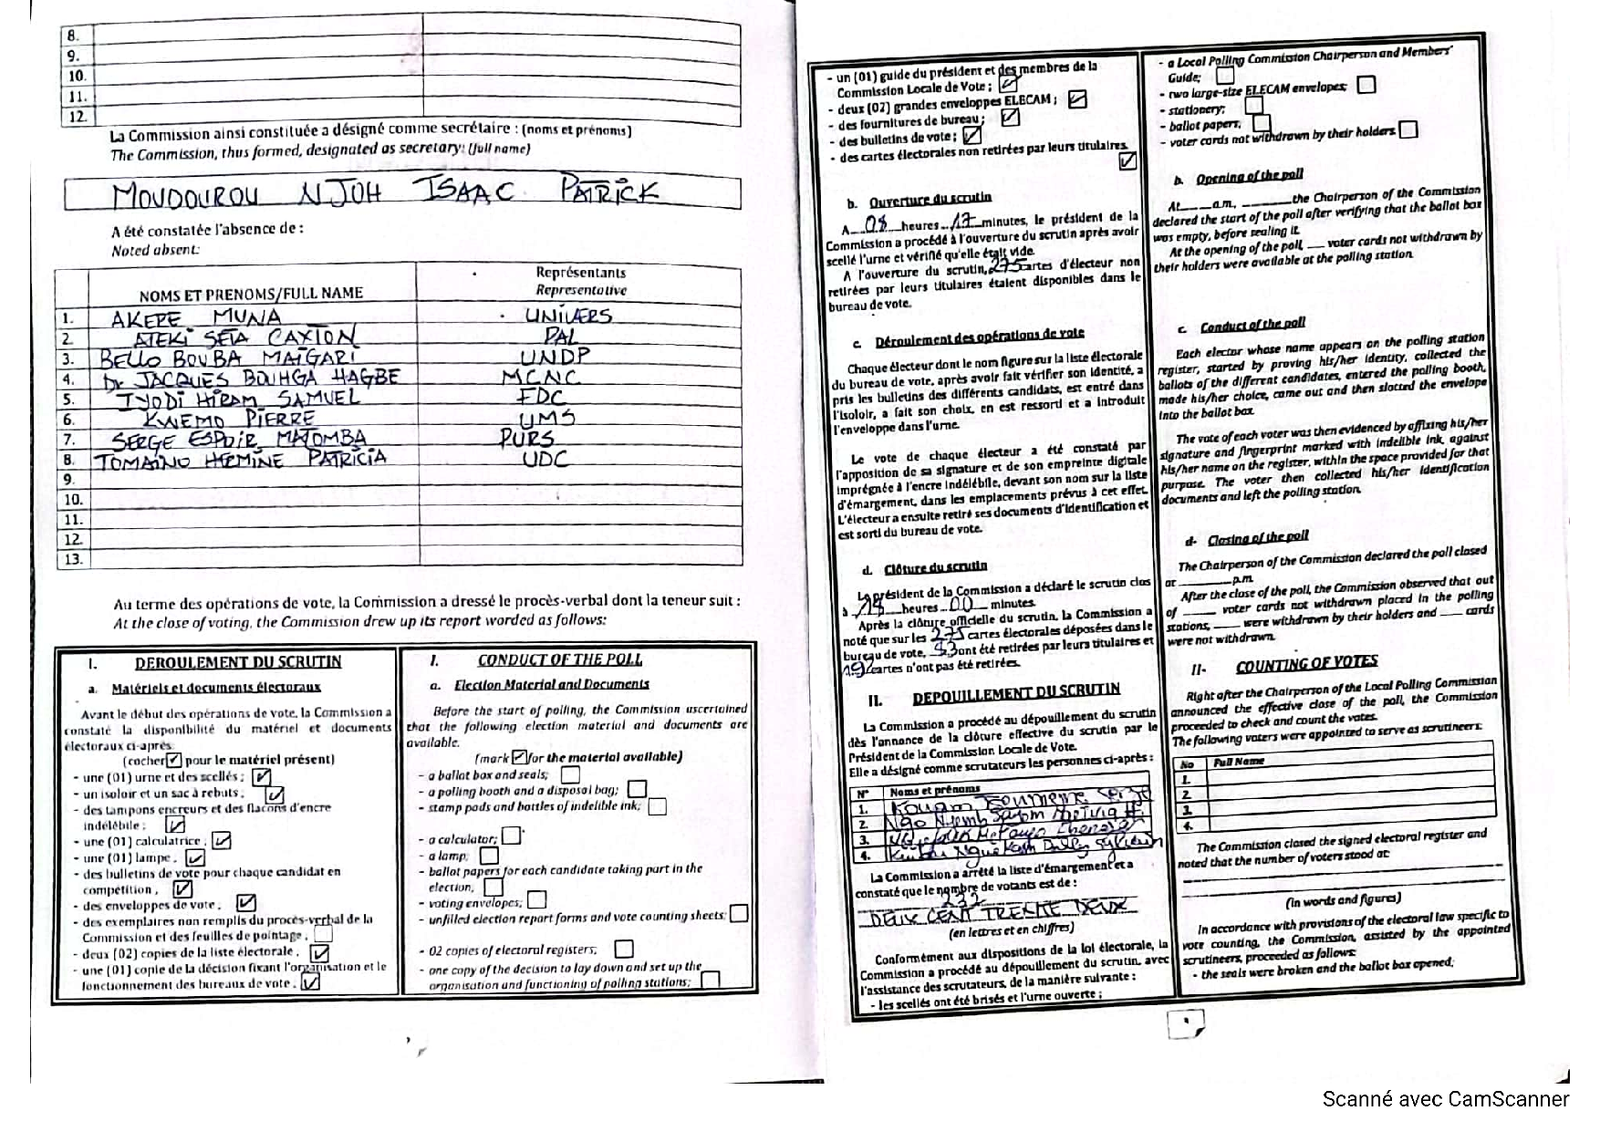 8.
9.
10.
11.
12.
La Commission ainsi constituée a désigné comme secrétaire : (noms et prénoms)
The Commission, thus formed, designated as secretary: (full name)
MOUDOUROU NJOH ISAAC PATRICK
A été constatée l'absence de :
Noted absent:
NOMS ET PRENOMS/FULL NAME
Représentants
Representative
1. AKERE MUNA UNIVERS
2. ATEKI SETA CAXTON PAL
3. BELLO BOUBA MAIGARI UNDP
4. Dr JACQUES BOUHGA HAGBE MCNC
5. IYODI HIRAM SAMUEL FDC
6. KWEMO PIERRE UMS
7. SERGE ESPOIR MATOMBA PURS
8. TOMAINO HERMINE PATRICIA UDC
9.
10.
11.
12.
13.
Au terme des opérations de vote, la Commission a dressé le procès-verbal dont la teneur suit :
At the close of voting, the Commission drew up its report worded as follows:
I. DEROULEMENT DU SCRUTIN
a. Matériels et documents électoraux
Avant le début des opérations de vote, la Commission a
constaté la disponibilité du matériel et documents
électoraux ci-après:
(cocher ☑ pour le matériel présent)
- une (01) urne et des scellés ; ☑
- un isoloir et un sac à rebuts ; ☑
- des tampons encreurs et des flacons d'encre
indélébile ; ☑
- une (01) calculatrice ; ☑
- une (01) lampe ; ☑
- des bulletins de vote pour chaque candidat en
compétition ; ☑
- des enveloppes de vote ; ☑
- des exemplaires non remplis du procès-verbal de la
Commission et des feuilles de pointage ; ☐
- deux (02) copies de la liste électorale ; ☑
- une (01) copie de la décision fixant l'organisation et le
fonctionnement des bureaux de vote ; ☑
I. CONDUCT OF THE POLL
a. Election Material and Documents
Before the start of polling, the Commission ascertained
that the following election material and documents are
available.
(mark ☑ for the material available)
- a ballot box and seals; ☐
- a polling booth and a disposal bag; ☐
- stamp pads and bottles of indelible ink; ☐
- a calculator; ☐
- a lamp; ☐
- ballot papers for each candidate taking part in the
election; ☐
- voting envelopes; ☐
- unfilled election report forms and vote counting sheets; ☐
- 02 copies of electoral registers; ☐
- one copy of the decision to lay down and set up the
organisation and functioning of polling stations; ☐
- un (01) guide du président et des membres de la
Commission Locale de Vote ; ☑
- deux (02) grandes enveloppes ELECAM ; ☑
- des fournitures de bureau ; ☑
- des bulletins de vote ; ☑
- des cartes électorales non retirées par leurs titulaires.
☑
b. Ouverture du scrutin
A 08 heures 17 minutes, le président de la
Commission a procédé à l'ouverture du scrutin après avoir
scellé l'urne et vérifié qu'elle était vide.
A l'ouverture du scrutin, 275 cartes d'électeur non
retirées par leurs titulaires étaient disponibles dans le
bureau de vote.
c. Déroulement des opérations de vote
Chaque électeur dont le nom figure sur la liste électorale
du bureau de vote, après avoir fait vérifier son identité, a
pris les bulletins des différents candidats, est entré dans
l'isoloir, a fait son choix, en est ressorti et a introduit
l'enveloppe dans l'urne.
Le vote de chaque électeur a été constaté par
l'apposition de sa signature et de son empreinte digitale
imprégnée à l'encre indélébile, devant son nom sur la liste
d'émargement, dans les emplacements prévus à cet effet.
L'électeur a ensuite retiré ses documents d'identification et
est sorti du bureau de vote.
d. Clôture du scrutin
Le président de la Commission a déclaré le scrutin clos
à 18 heures 00 minutes.
Après la clôture officielle du scrutin, la Commission a
noté que sur les 275 cartes électorales déposées dans le
bureau de vote, 83 ont été retirées par leurs titulaires et
192 cartes n'ont pas été retirées.
II. DEPOUILLEMENT DU SCRUTIN
La Commission a procédé au dépouillement du scrutin
dès l'annonce de la clôture effective du scrutin par le
Président de la Commission Locale de Vote.
Elle a désigné comme scrutateurs les personnes ci-après :
N° Noms et prénoms
1. Kouam
2. Ngo Nyemb
3.
4.
La Commission a arrêté la liste d'émargement et a
constaté que le nombre de votants est de :
232
DEUX CENT TRENTE DEUX
(en lettres et en chiffres)
Conformément aux dispositions de la loi électorale, la
Commission a procédé au dépouillement du scrutin, avec
l'assistance des scrutateurs, de la manière suivante :
- les scellés ont été brisés et l'urne ouverte ;
- a Local Polling Commission Chairperson and Members'
Guide; ☐
- two large-size ELECAM envelopes; ☐
- stationery; ☐
- ballot papers; ☐
- voter cards not withdrawn by their holders ☐
b. Opening of the poll
At____a.m, ______the Chairperson of the Commission
declared the start of the poll after verifying that the ballot box
was empty, before sealing it.
At the opening of the poll, ___ voter cards not withdrawn by
their holders were available at the polling station.
c. Conduct of the poll
Each elector whose name appears on the polling station
register, started by proving his/her identity, collected the
ballots of the different candidates, entered the polling booth,
made his/her choice, came out and then slotted the envelope
into the ballot box.
The vote of each voter was then evidenced by affixing his/her
signature and fingerprint marked with indelible ink, against
his/her name on the register, within the space provided for that
purpose. The voter then collected his/her identification
documents and left the polling station.
d- Closing of the poll
The Chairperson of the Commission declared the poll closed
at ________p.m.
After the close of the poll, the Commission observed that out
of _____ voter cards not withdrawn placed in the polling
stations, ____ were withdrawn by their holders and ____ cards
were not withdrawn.
II- COUNTING OF VOTES
Right after the Chairperson of the Local Polling Commission
announced the effective close of the poll, the Commission
proceeded to check and count the votes.
The following voters were appointed to serve as scrutineers:
No Full Name
1.
2.
3.
4.
The Commission closed the signed electoral register and
noted that the number of voters stood at:
(in words and figures)
In accordance with provisions of the electoral law specific to
vote counting, the Commission, assisted by the appointed
scrutineers, proceeded as follows:
- the seals were broken and the ballot box opened;
Scanné avec CamScanner